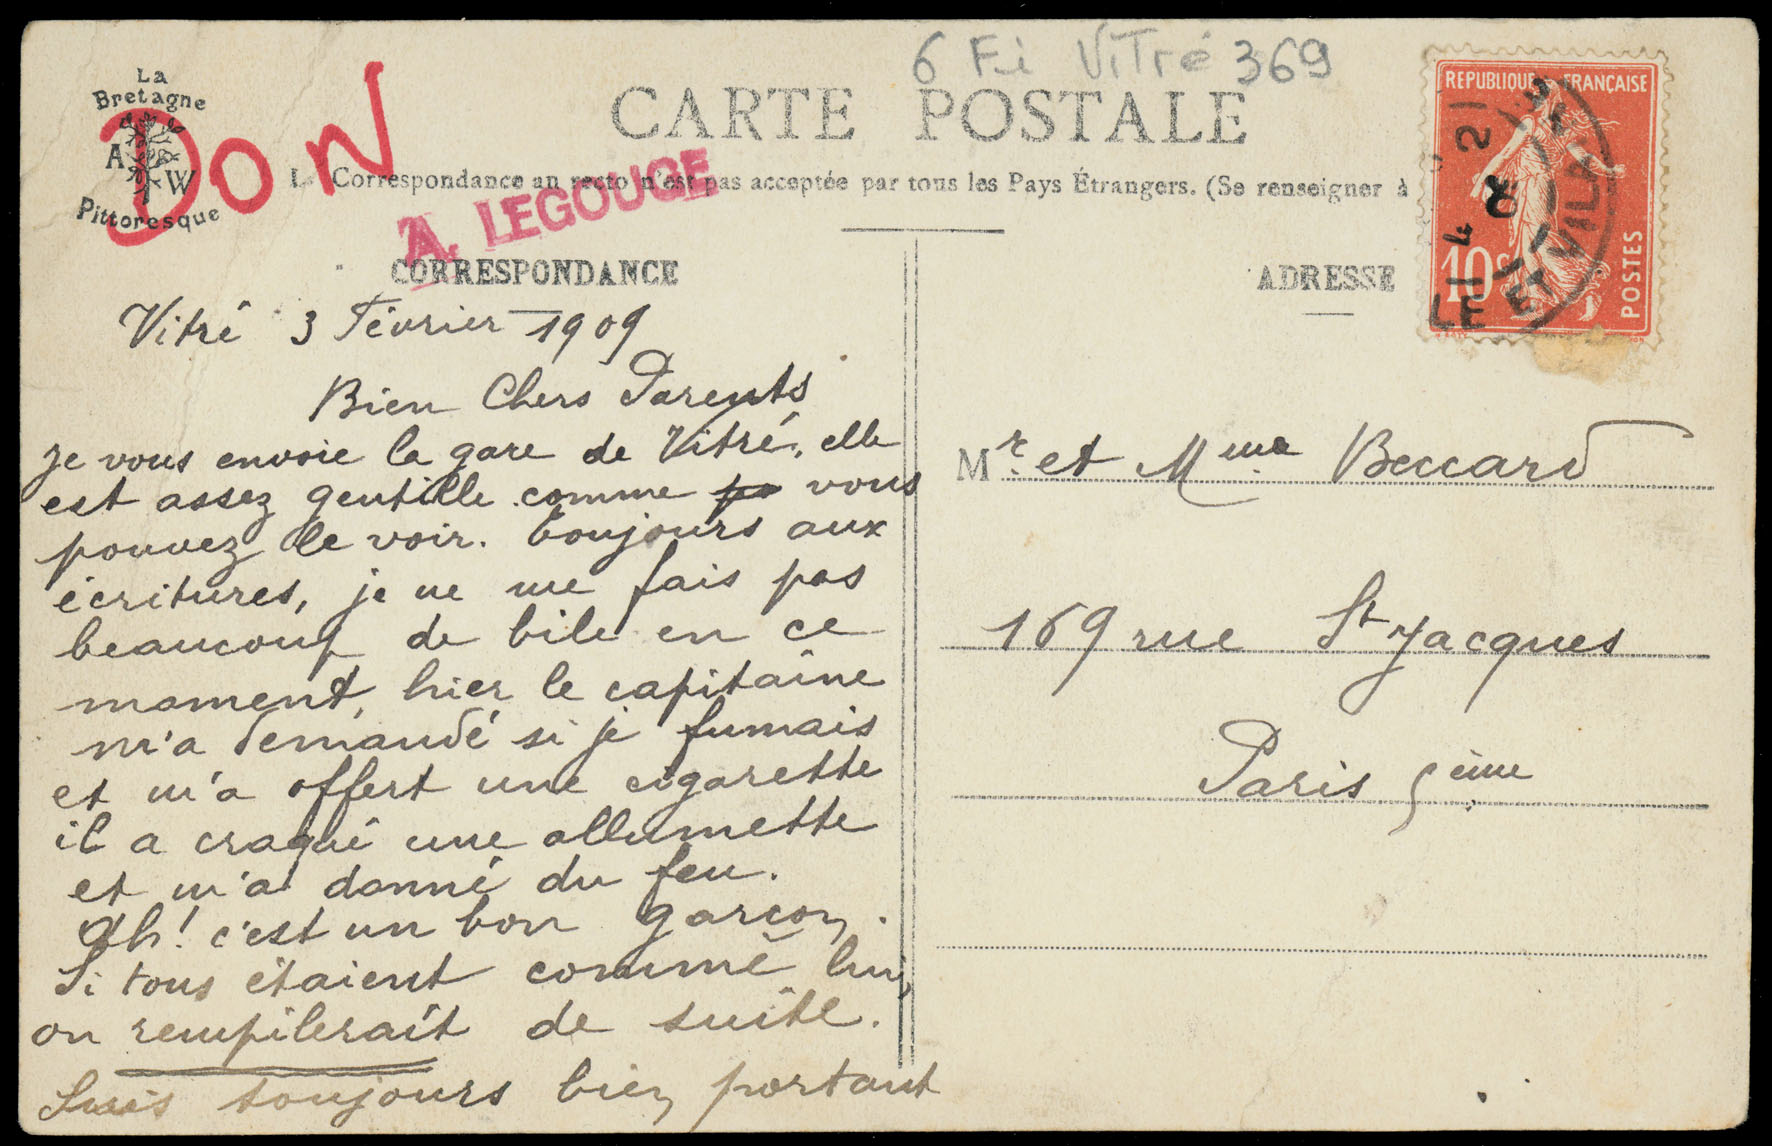 6 Fi Vitré 369
La
Bretagne
A W
Pittoresque
DON
CARTE POSTALE
La Correspondance au recto n'est pas acceptée par tous les Pays Étrangers. (Se renseigner à
A. LEGOUGE
CORRESPONDANCE
Vitré 3 Février 1909
Bien Chers Parents
je vous envoie la gare de Vitré, elle
est assez gentille comme po vous
pouvez le voir. Toujours aux
écritures, je ne me fais pas
beaucoup de bile en ce
moment, hier le capitaine
m'a demandé si je fumais
et m'a offert une cigarette
il a craqué une allumette
et m'a donné du feu.
Ah! c'est un bon garçon.
Si tous étaient comme lui,
on rempilerait de suite.
Suis toujours bien portant
ADRESSE
REPUBLIQUE FRANÇAISE
10c
POSTES
ILLE ET VILAINE
Mr. et Mme Beccard
169 rue St Jacques
Paris 5ème